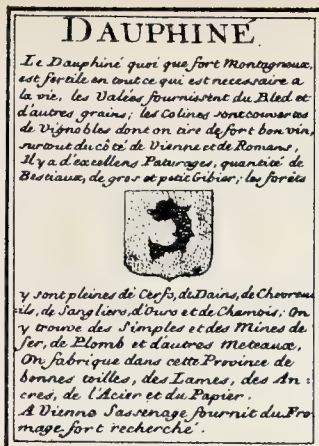 DAUPHINÉ
Le Dauphiné quoi que fort Montagneux,
est fertile en tout ce qui est necessaire a
la vie, les Valées fournissent du Bled et
d'autres grains; les Colines sont couvertes
de Vignobles dont on tire de fort bon vin,
surtout du côté de Vienne et de Romans,
Il y a d'excellens Paturages, quantité de
Bestiaux, de gros et petit Gibier; les forêts
y sont pleines de Cerfs, de Dains, de Chevreu
ils, de Sangliers, d'Ours et de Chamois; On
y trouve des Simples et des Mines de
fer, de Plomb et d'autres Meteaux,
On fabrique dans cette Province de
bonnes toilles, des Lames, des An-
cres, de l'Acier et du Papier.
A Vienne Sassenage fournit du Fro
mage fort recherché.